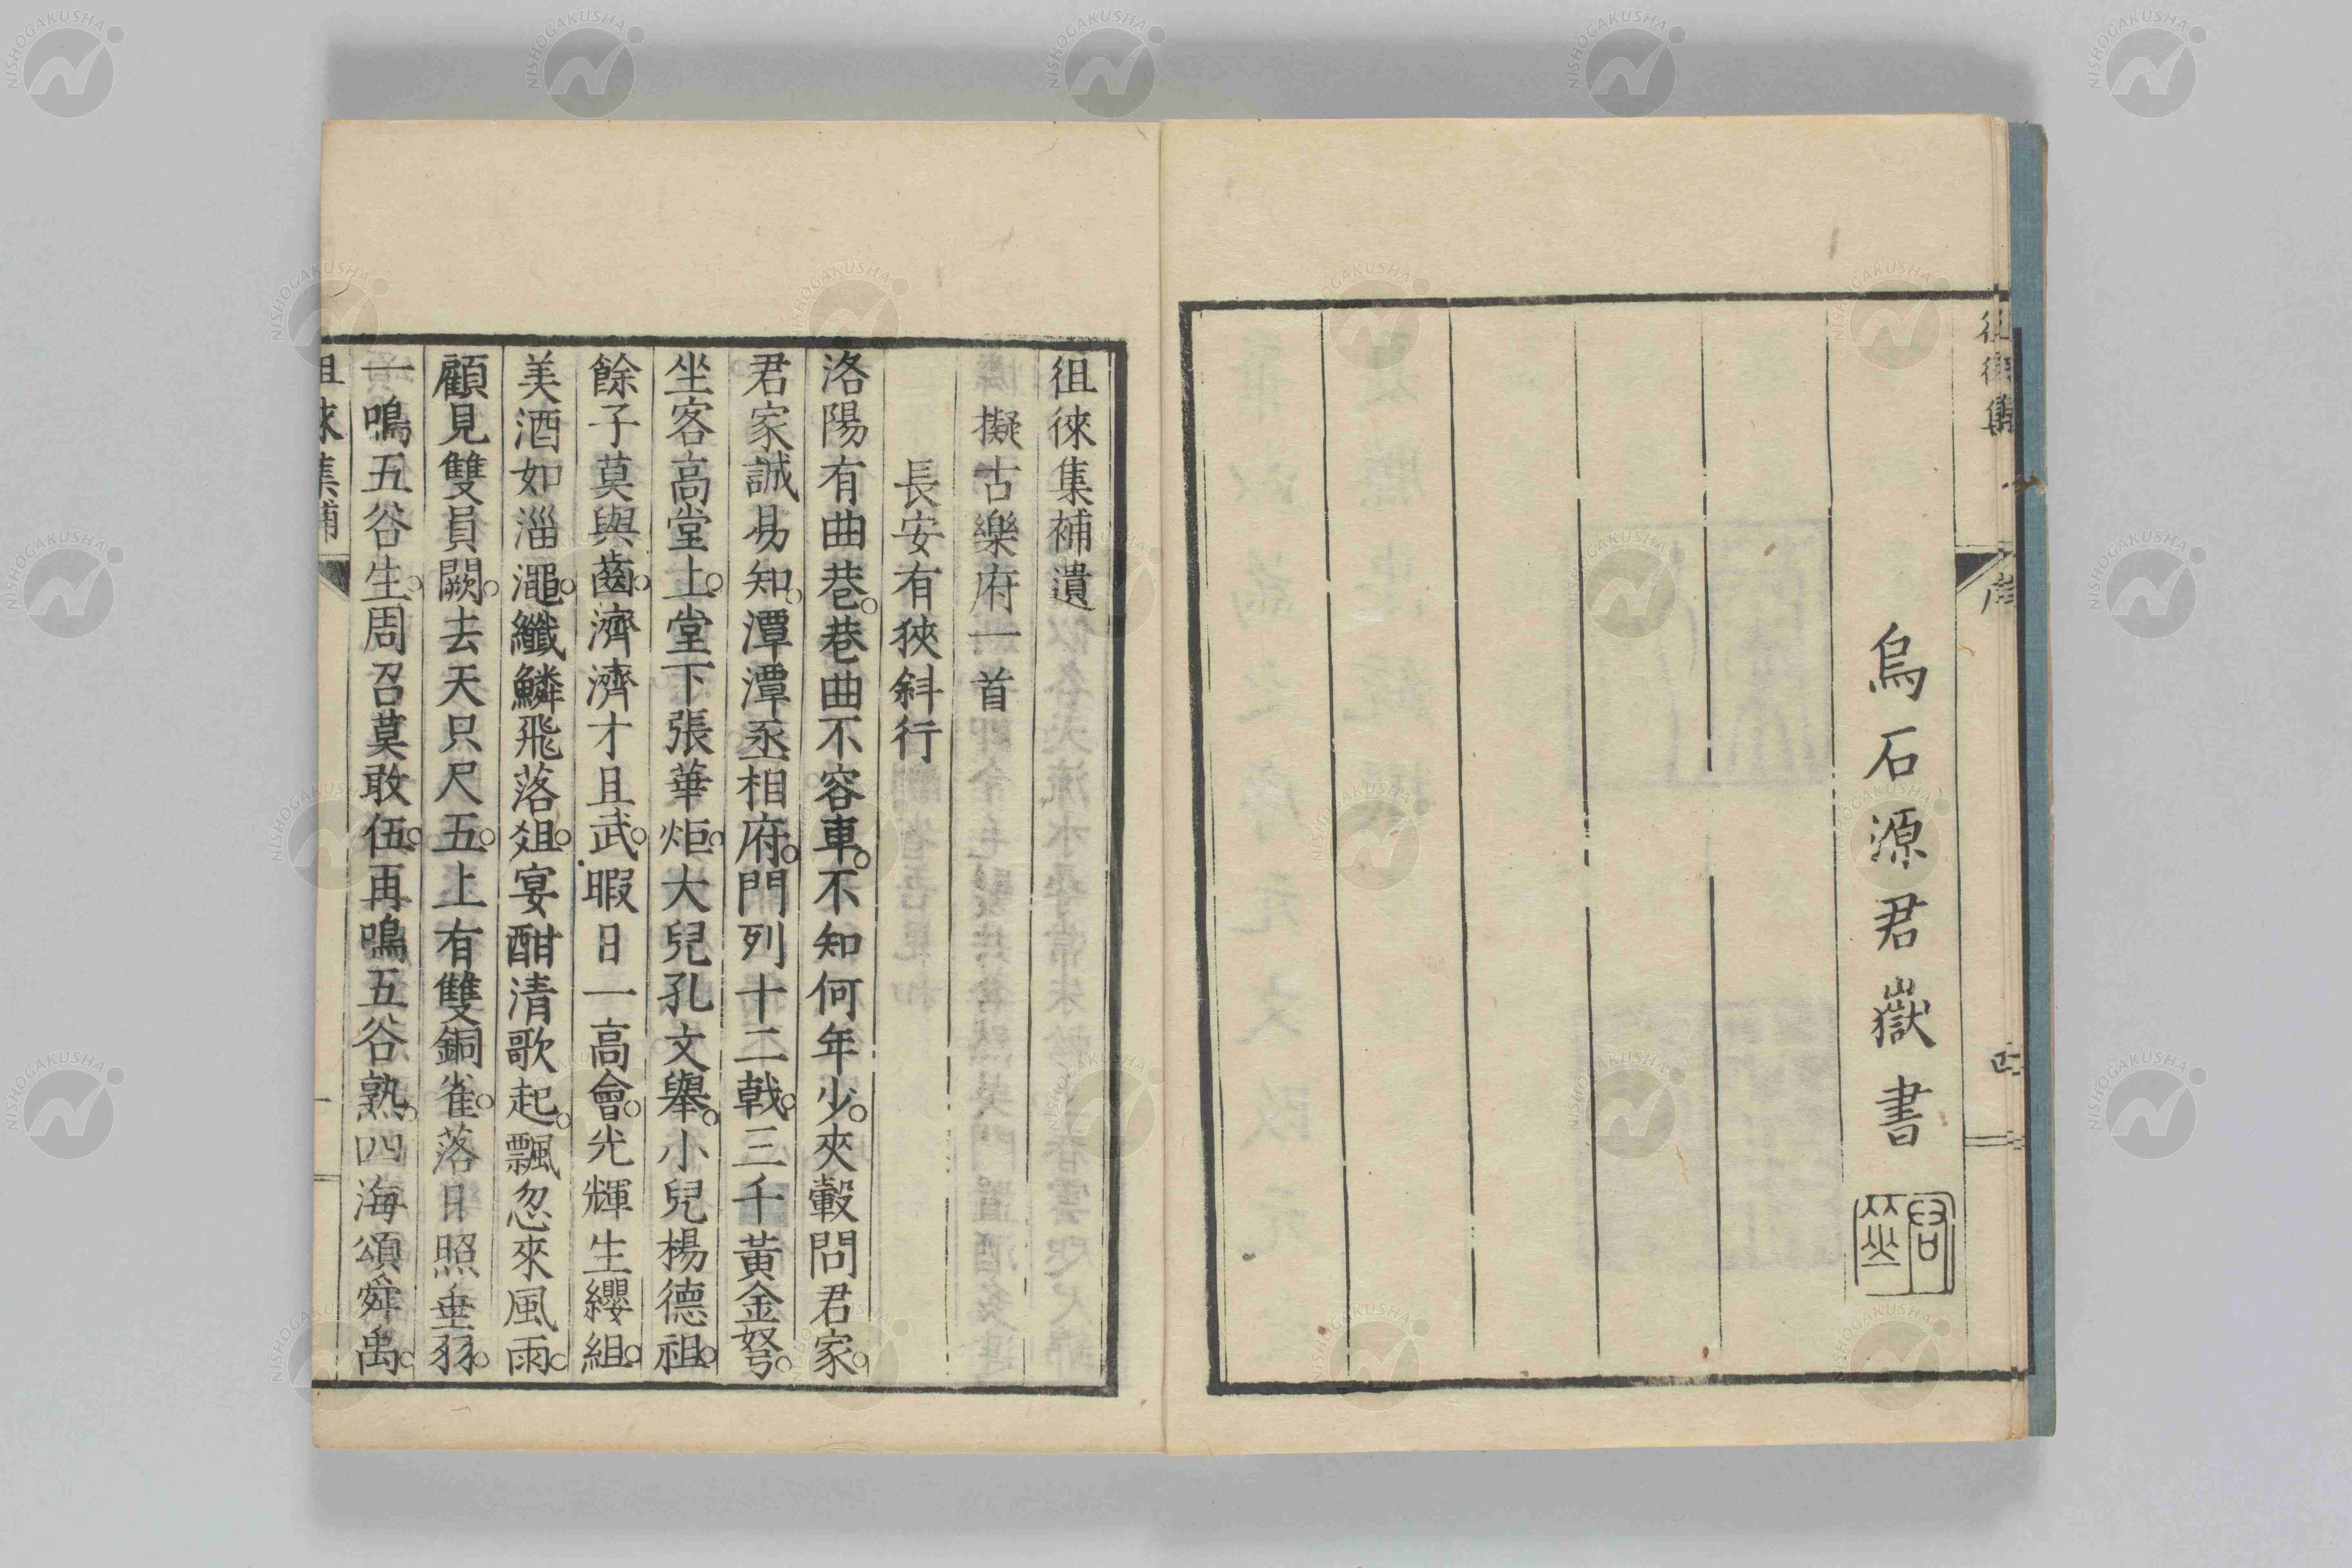 徂徠集
序
四
烏石源君嶽書
徂徠集補遺
擬古樂府一首
長安有狹斜行
洛陽有曲巷。巷曲不容車。不知何年少。夾轂問君家。
君家誠易知。潭潭丞相府。門列十二戟。三千黃金弩。
坐客高堂上。堂下張華炬。大兒孔文舉。小兒楊德祖。
餘子莫與齒。濟濟才且武。暇日一高會。光輝生纓組。
美酒如淄澠。纖鱗飛落俎。宴酣清歌起。飄忽來風雨。
顧見雙員闕。去天只尺五。上有雙銅雀。落日照垂羽。
一鳴五谷生。周召莫敢伍。再鳴五谷熟。四海頌舜禹。
徂徠集補
一
NISHOGAKUSHA